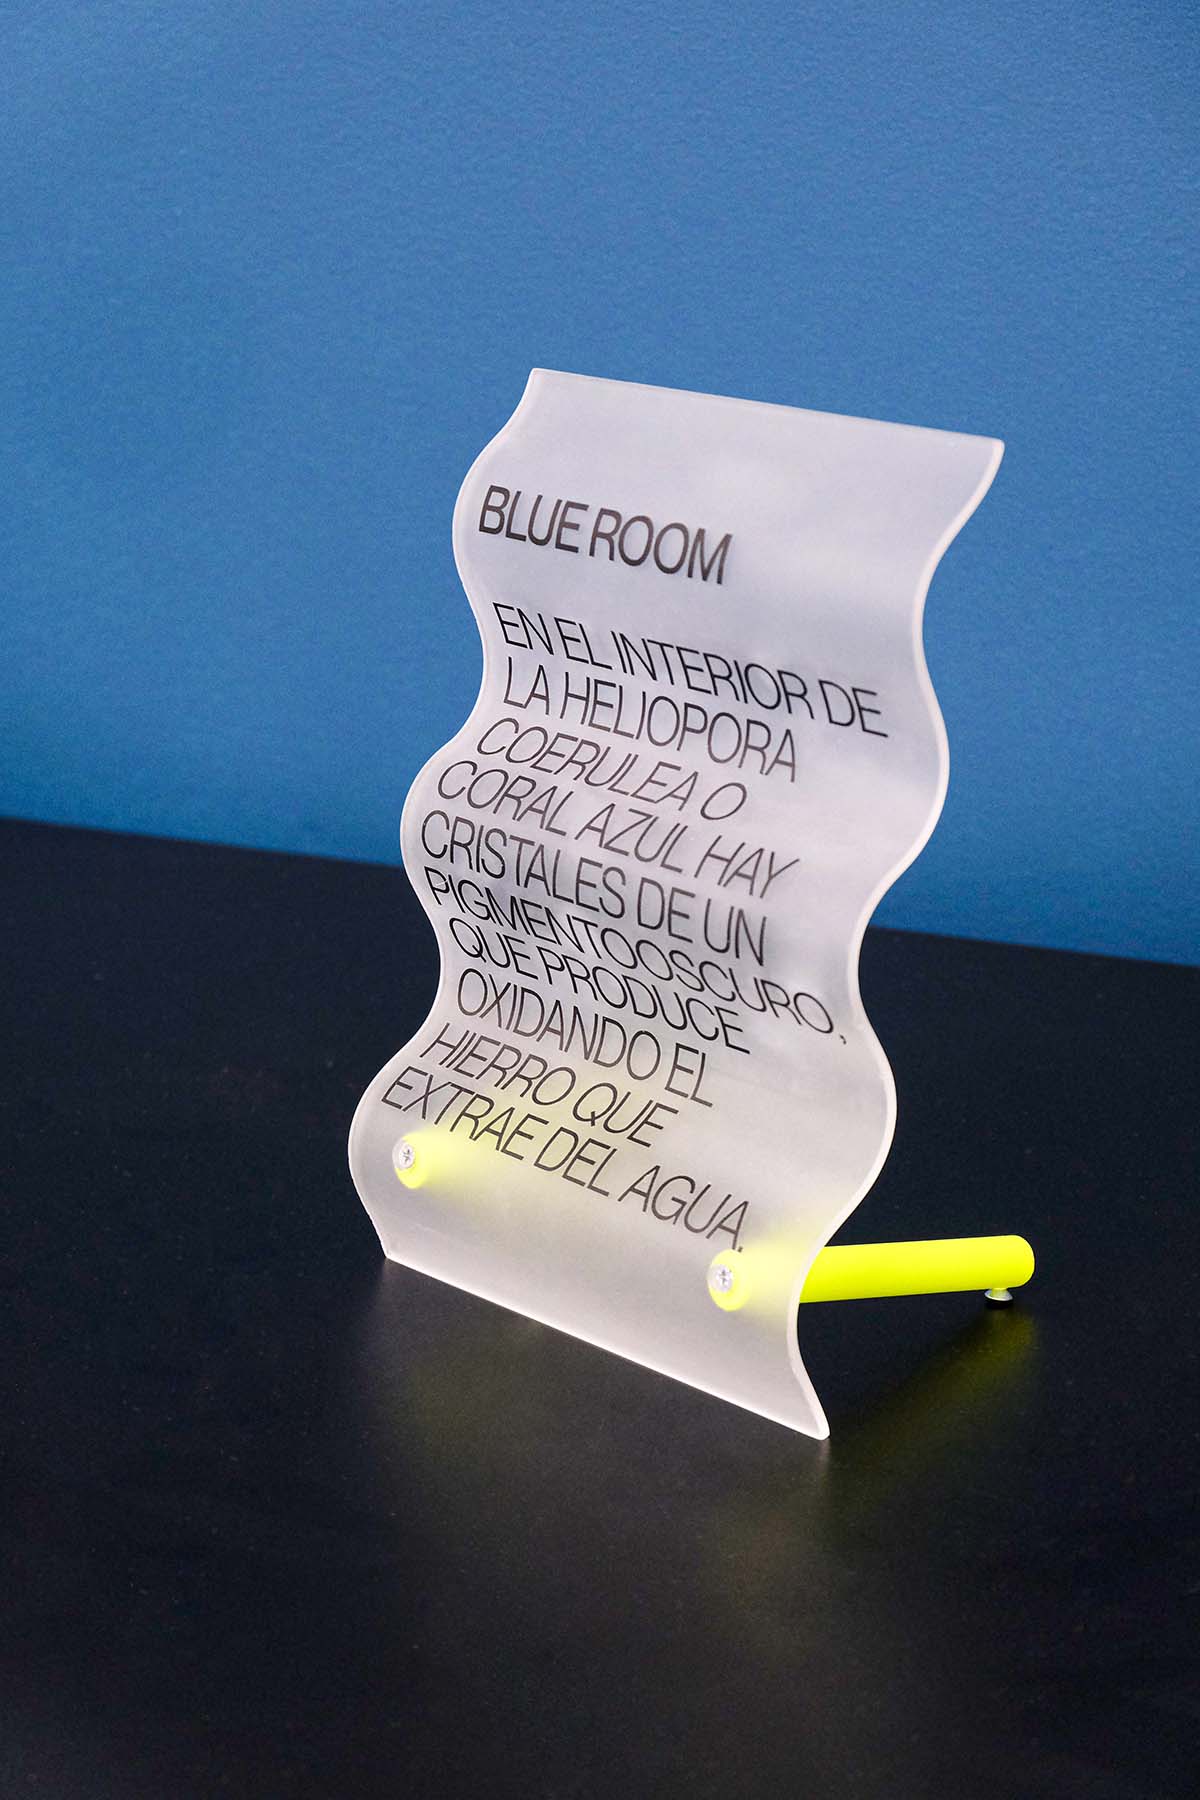 BLUE ROOM
EN EL INTERIOR DE
LA HELIOPORA
COERULEA O
CORAL AZUL HAY
CRISTALES DE UN
PIGMENTOOSCURO,
QUE PRODUCE
OXIDANDO EL
HIERRO QUE
EXTRAE DEL AGUA.